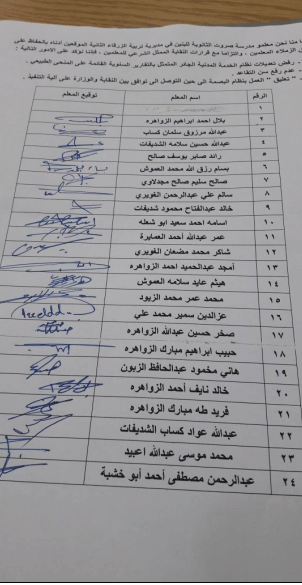 نحن معلمو مدرسة صروت الثانوية للبنين في مديرية تربية الزرقاء الثانية الموقعين أدناه بالحفاظ على
الزملاء المعلمين ، والتزاما مع قرارات النقابة الممثل الشرعي للمعلمين ، فإننا نؤكد على الأمور التالية :
- رفض تعديلات نظام الخدمة المدنية الجائر المتمثل بالتقارير السنوية القائمة على المنحى الطبيعي .
- عدم رفع سن التقاعد .
" تعليق " العمل بنظام البصمة الى حين التوصل الى توافق بين النقابة والوزارة على آلية التنفيذ .
الرقم اسم المعلم توقيع المعلم
١
٢ بلال احمد ابراهيم الزواهره
٣ عبدالله مرزوق سلمان كساب
٤ عبدالله حسين سلامه الشديفات
٥ رائد صابر يوسف صالح
٦ بسام رزق الله محمد العموش
٧ صالح سليم صالح مجدلاوي
٨ سالم علي عبدالرحمن الغويري
٩ خالد عبدالفتاح محمود شديفات
١٠ اسامه احمد سعيد ابو شعله
١١ عمر عبدالله أحمد العمايرة
١٢ شاكر محمد مضعان الغويري
١٣ أمجد عبدالحميد احمد الزواهره
١٤ هيثم عايد سلامه العموش
١٥ محمد عمر محمد الزيود
١٦ عزالدين سمير محمد علي
١٧ صخر حسين عبدالله الزواهره
١٨ حبيب ابراهيم مبارك الزواهره
١٩ هاني محمود عبدالحافظ الزبون
٢٠ خالد نايف أحمد الزواهره
٢١ فريد طه مبارك الزواهره
٢٢ عبدالله عواد كساب الشديفات
٢٣ محمد موسى عبدالله اعبيد
٢٤ عبدالرحمن مصطفى أحمد أبو خشبة